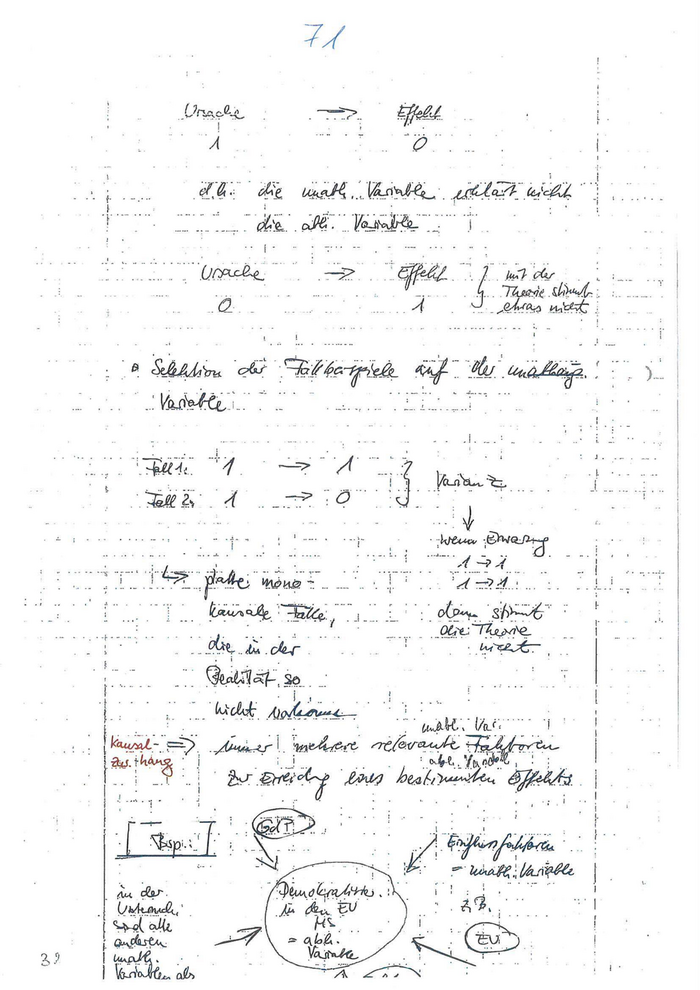 71
Ursache → Effekt
1 0
d.h. die unabh. Variable erklärt nicht
die abh. Variable
Ursache → Effekt
0 1
mit der
Theorie stimmt
etwas nicht
Selektion der Fallbeispiele auf der unabhäng.
Variable
Fall 1: 1 → 1
Fall 2: 1 → 0
Varianz
wenn Erwartung
1 → 1
1 → 1
dann stimmt
die Theorie
nicht
↳ platte mono-
kausale Fälle,
die in der
Realität so
nicht vorkommen
Kausal-
zus.hang
⇒ immer mehrere relevante Faktoren
unabh. Var.
zur Erreichg eines bestimmten Effekts
abh. Variabl
Bsp.:
GdP
Einflussfaktoren
= unabh. Variable
z.B.
EU
Demokratisier.
in den EU
MS
= abh.
Variable
in der
Untersuch.
sind alle
anderen
unabh.
Variablen als
39